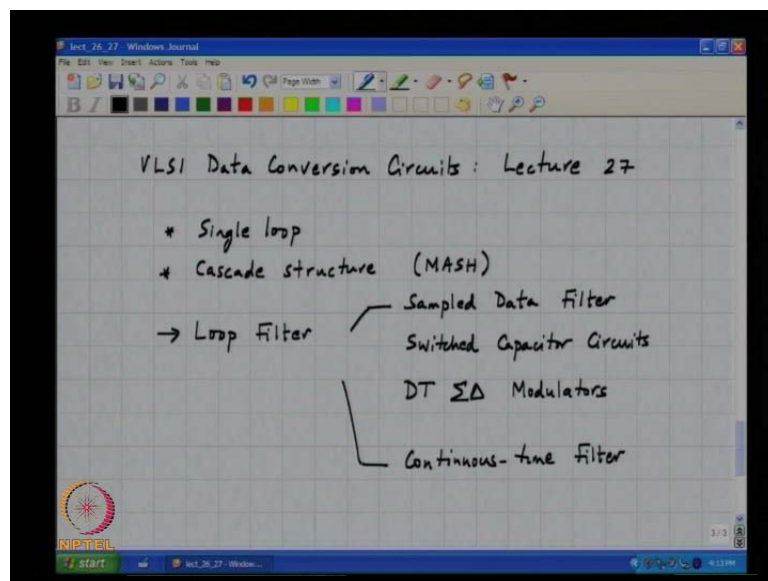 lect_26_27 - Windows Journal
File Edit View Insert Actions Tools Help
Page Width
B I
VLSI Data Conversion Circuits : Lecture 27
* Single loop
* Cascade structure (MASH)
→ Loop Filter
Sampled Data Filter
Switched Capacitor Circuits
DT ΣΔ Modulators
Continuous-time Filter
3/3
NPTEL
start
lect_26_27 - Window...
4:13 PM